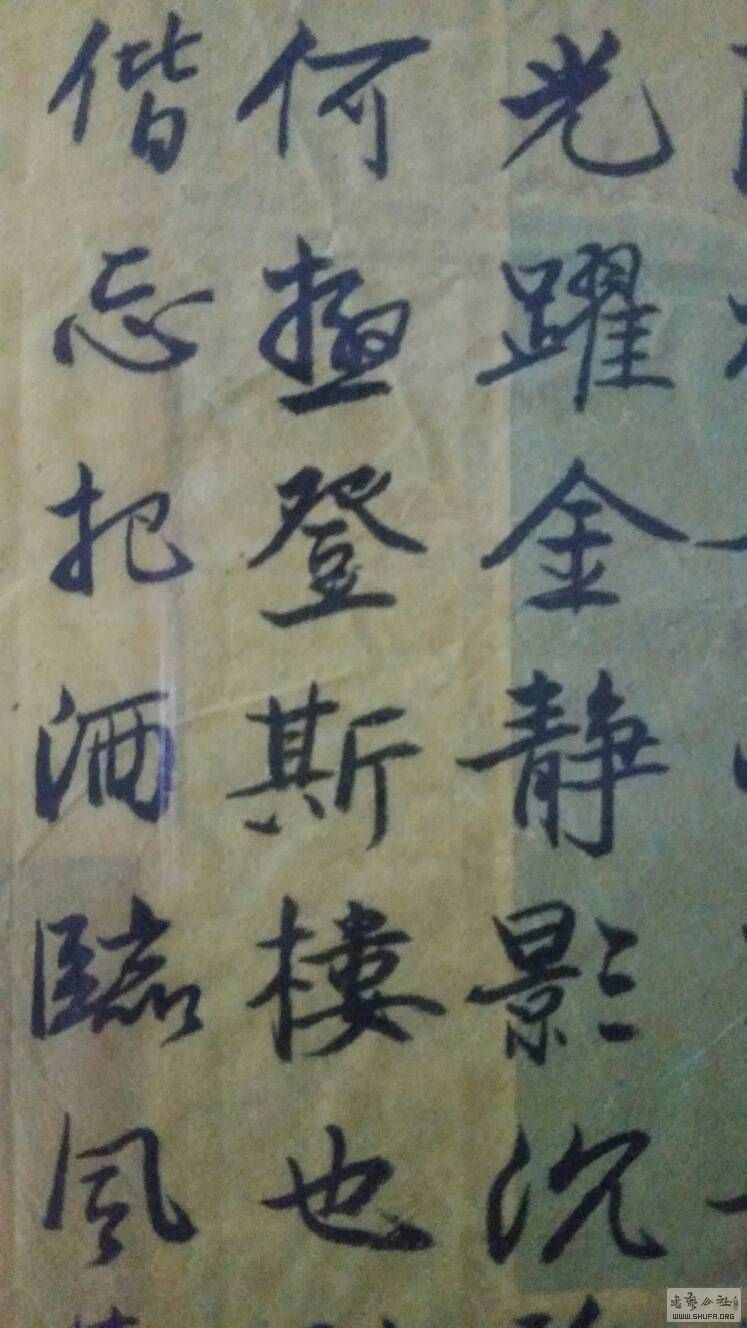 光躍金静影沉
何極登斯樓也
偕忘把酒臨風
WWW.SHUFA.ORG